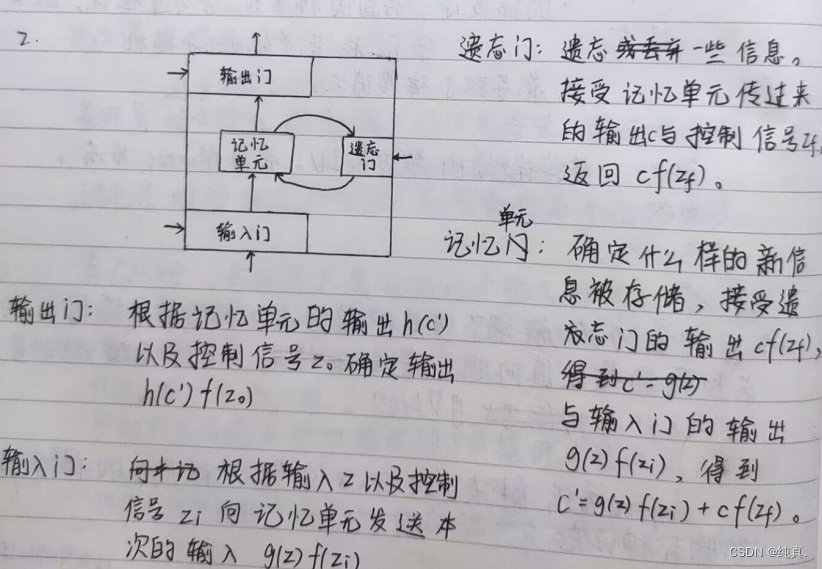 2.
输出门
记忆
单元
遗忘
门
输入门
遗忘门: 遗忘或丢弃一些信息。
接受记忆单元传过来
的输出c与控制信号zf,
返回 cf(zf)。
单元
记忆门: 确定什么样的新信
息被存储, 接受遗
忘门的输出cf(zf),
得到c'=g(z)
与输入门的输出
g(z)f(zi), 得到
c'=g(z)f(zi)+cf(zf)。
输出门: 根据记忆单元的输出h(c')
以及控制信号zo确定输出
h(c')f(zo)
输入门: 根据输入z以及控制
信号zi向记忆单元发送本
次的输入 g(z)f(zi)
CSDN @纯真.